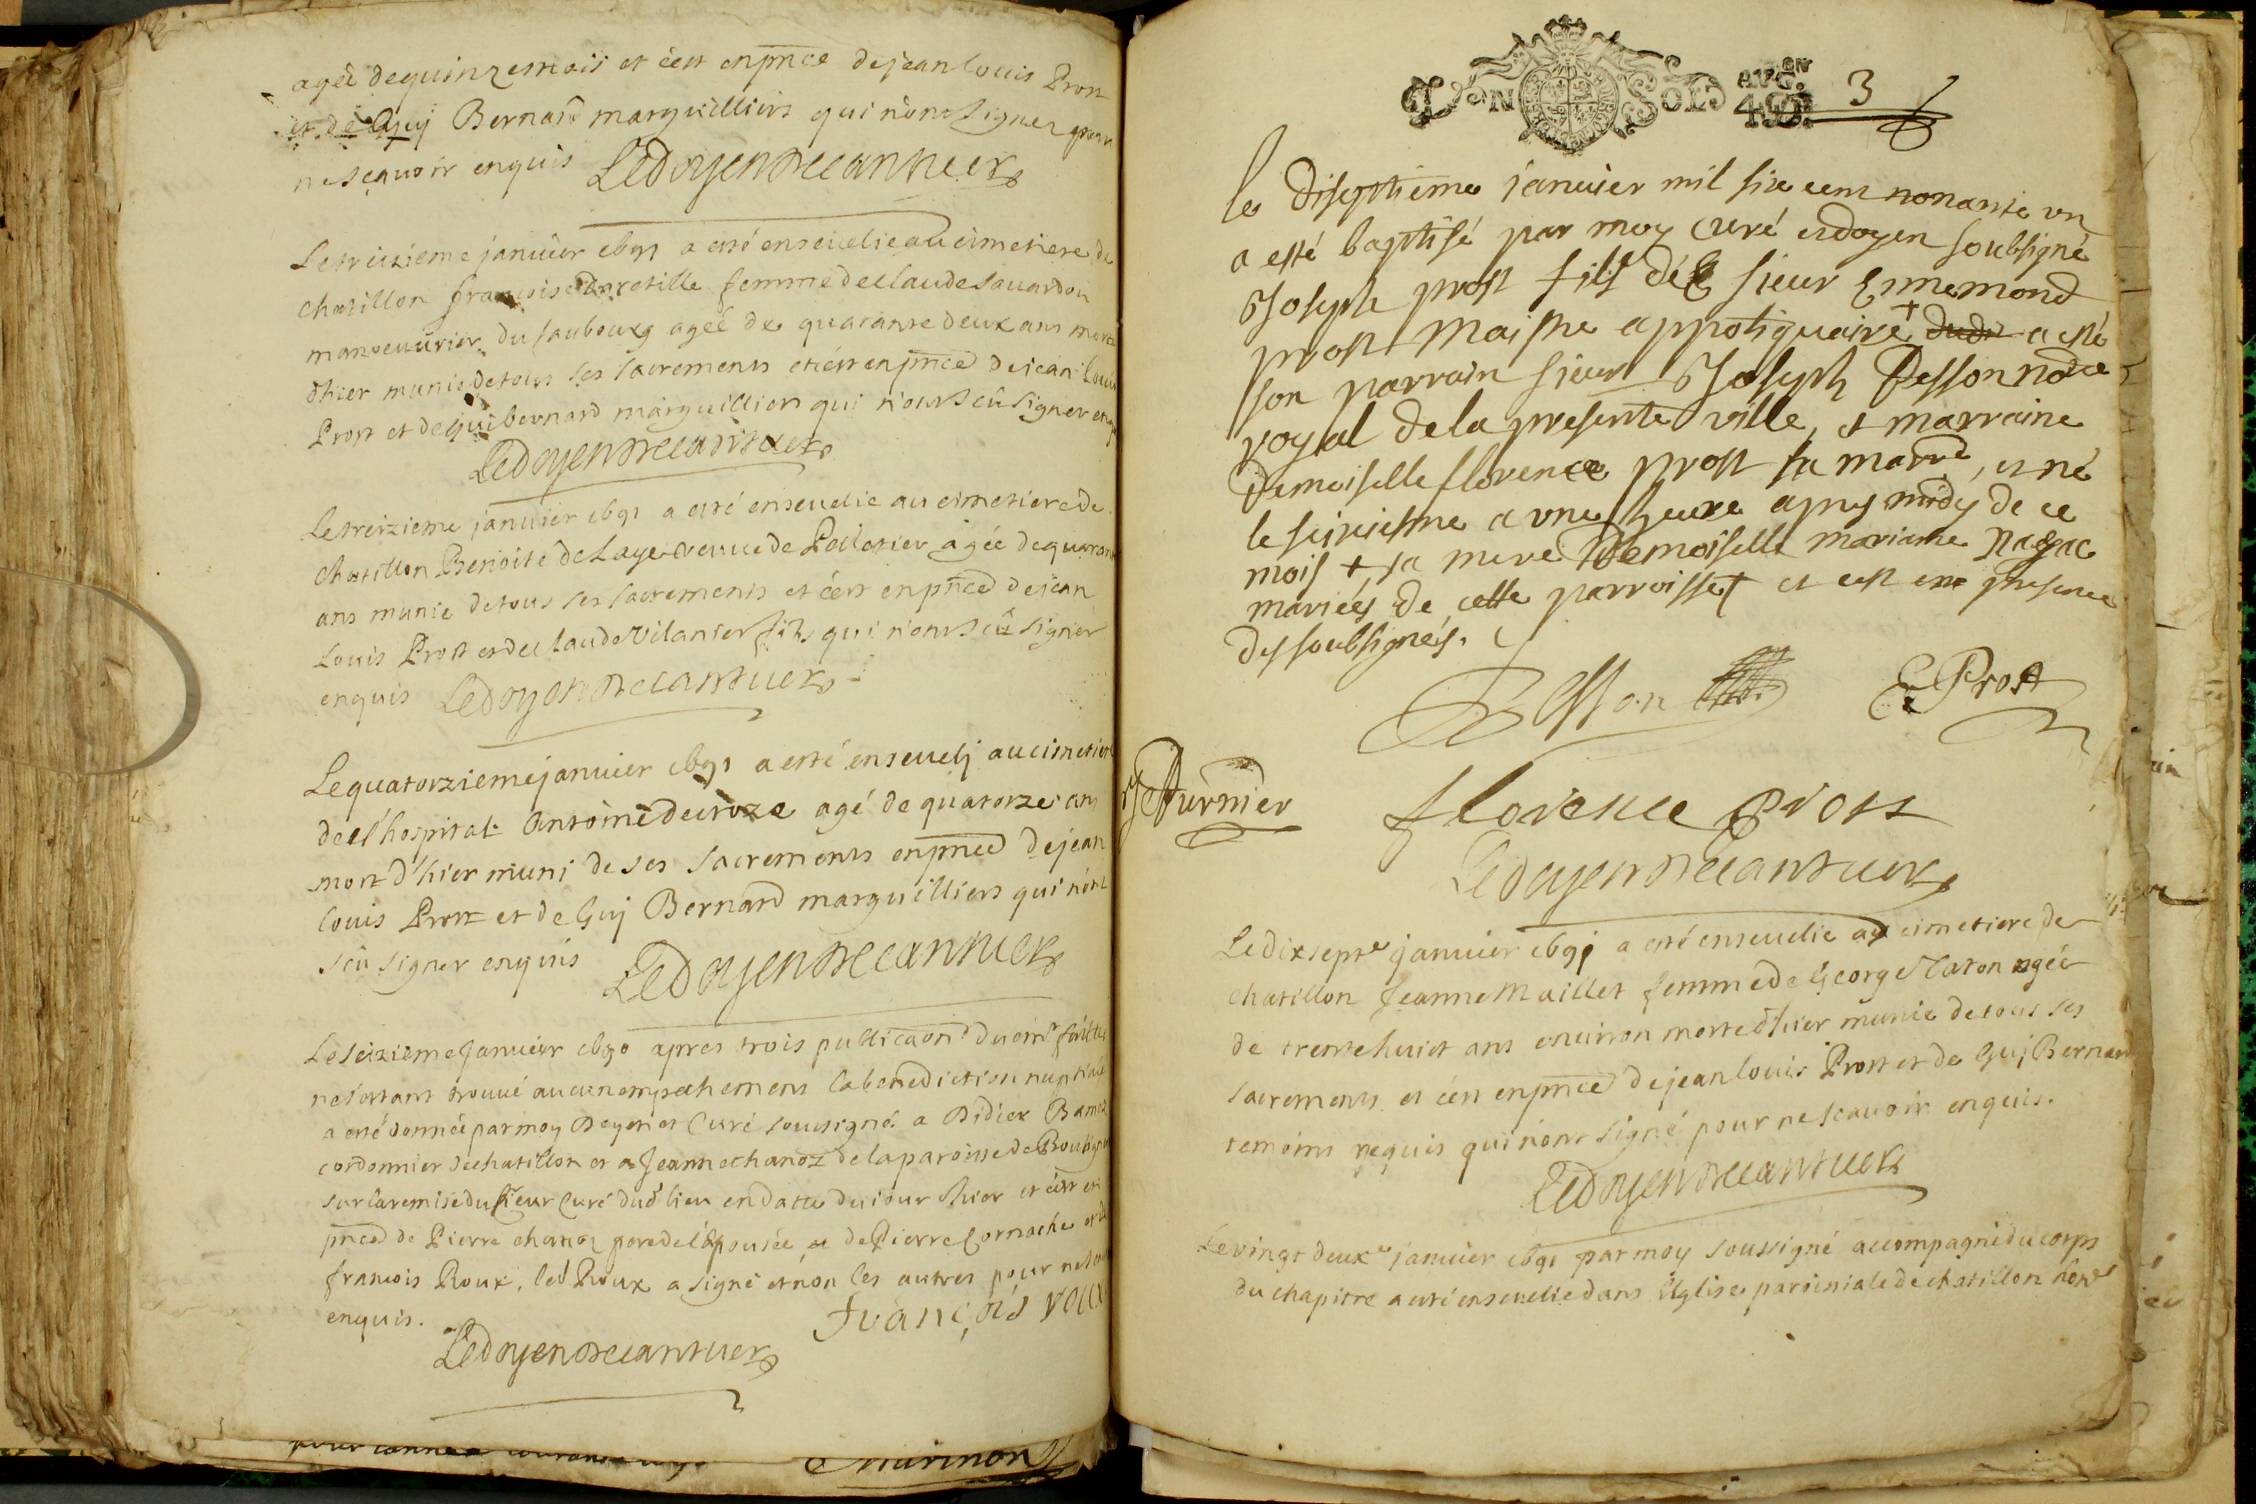 agée de quinze mois et c'est en pnce de jean Louis Prost
et de Guy Bernard marguilliers qui n'ont signer pour
ne scavoir enquis Ledoyen Decantuer
Le treizieme janvier 1691 a esté ensevelie au cimetiere de
chatillon françoise femme de claude savardon
manoeuvrier du faubourg ageé de quarante deux ans morte
d'hier munie de tous ses sacrements et c'est en pnce de jean Louis
Prost et de gui bernard marguilliers qui n'ont sçû signer enquis
Ledoyen Decantuer
Le treizieme janvier 1691 a esté ensevelie au cimetiere de
chatillon Benoite de Laye veuve de Pelletier agée de quarante
ans munie de tous ses sacrements et c'est en pnce de jean
Louis Prost et de claude Vilanier fils qui n'ont sçû signer
enquis Ledoyen Decantuer
Le quatorzieme janvier 1691 a esté ensevelj au cimetiere
de l'hospital Antoine decroze agé de quatorze ans
mort d'hier muni de ses sacrements en pnce de jean
Louis Prost et de Guj Bernard marguilliers qui n'ont
sçû signer enquis Ledoyen Decantuer
Le seizieme Janvier 1690 apres trois publicaōns
ne s'estant trouvé aucun empechement la benediction nuptiale
a esté donnée par moy Doyen et Curé soussigné a Didier Bamet
cordonnier de chatillon et a Jeanne chanoz de la paroisse de
sur la remise du sieur Curé dud lieu en datte du iour d'hier et c'est en
pnce de Pierre chanoz pere de l'épousée de Pierre Cornache et de
francois Roux, led Roux a signé et non les autres pour ne scavoir
enquis. François roux
Ledoyen Decantuer
GEN SOLS 4.D. 3
le diseptiéme ianuier mil six cent nonante vn
a esté baptisé par moy Curé et doyen soubsigné
Joseph prost fils de sieur Ennemond
prost Maistre appotiquaire + dudt a esté
son parrain sieur Joseph Besson no're
royal de la presente ville, et marraine
Demoiselle florence prost sa marre, et né
le seiziesme a vne heure apres midy de ce
mois + sa mere Demoiselle mariane
mariés de cette parroisse + et c'est en presence
des soubsignés.
Besson E Prost
Jfurnier florence prost
Ledoyen Decantuer
Le dix septe janvier 1691 a esté ensevelie au cimetiere de
chatillon Jeanne Maillet femme de George Taton agée
de trente huict ans environ morte d'hier munie de tous ses
sacrements et c'est en pnce de jean louis Prost et de Guj Bernard
temoins requis qui n'ont signé pour ne scavoir enquis.
Ledoyen Decantuer
Le vingt deuxe janvier 1691 par moy soussigné accompagné du corps
du chapitre a esté ensevelie dans l'Eglise paroissiale de chatillon